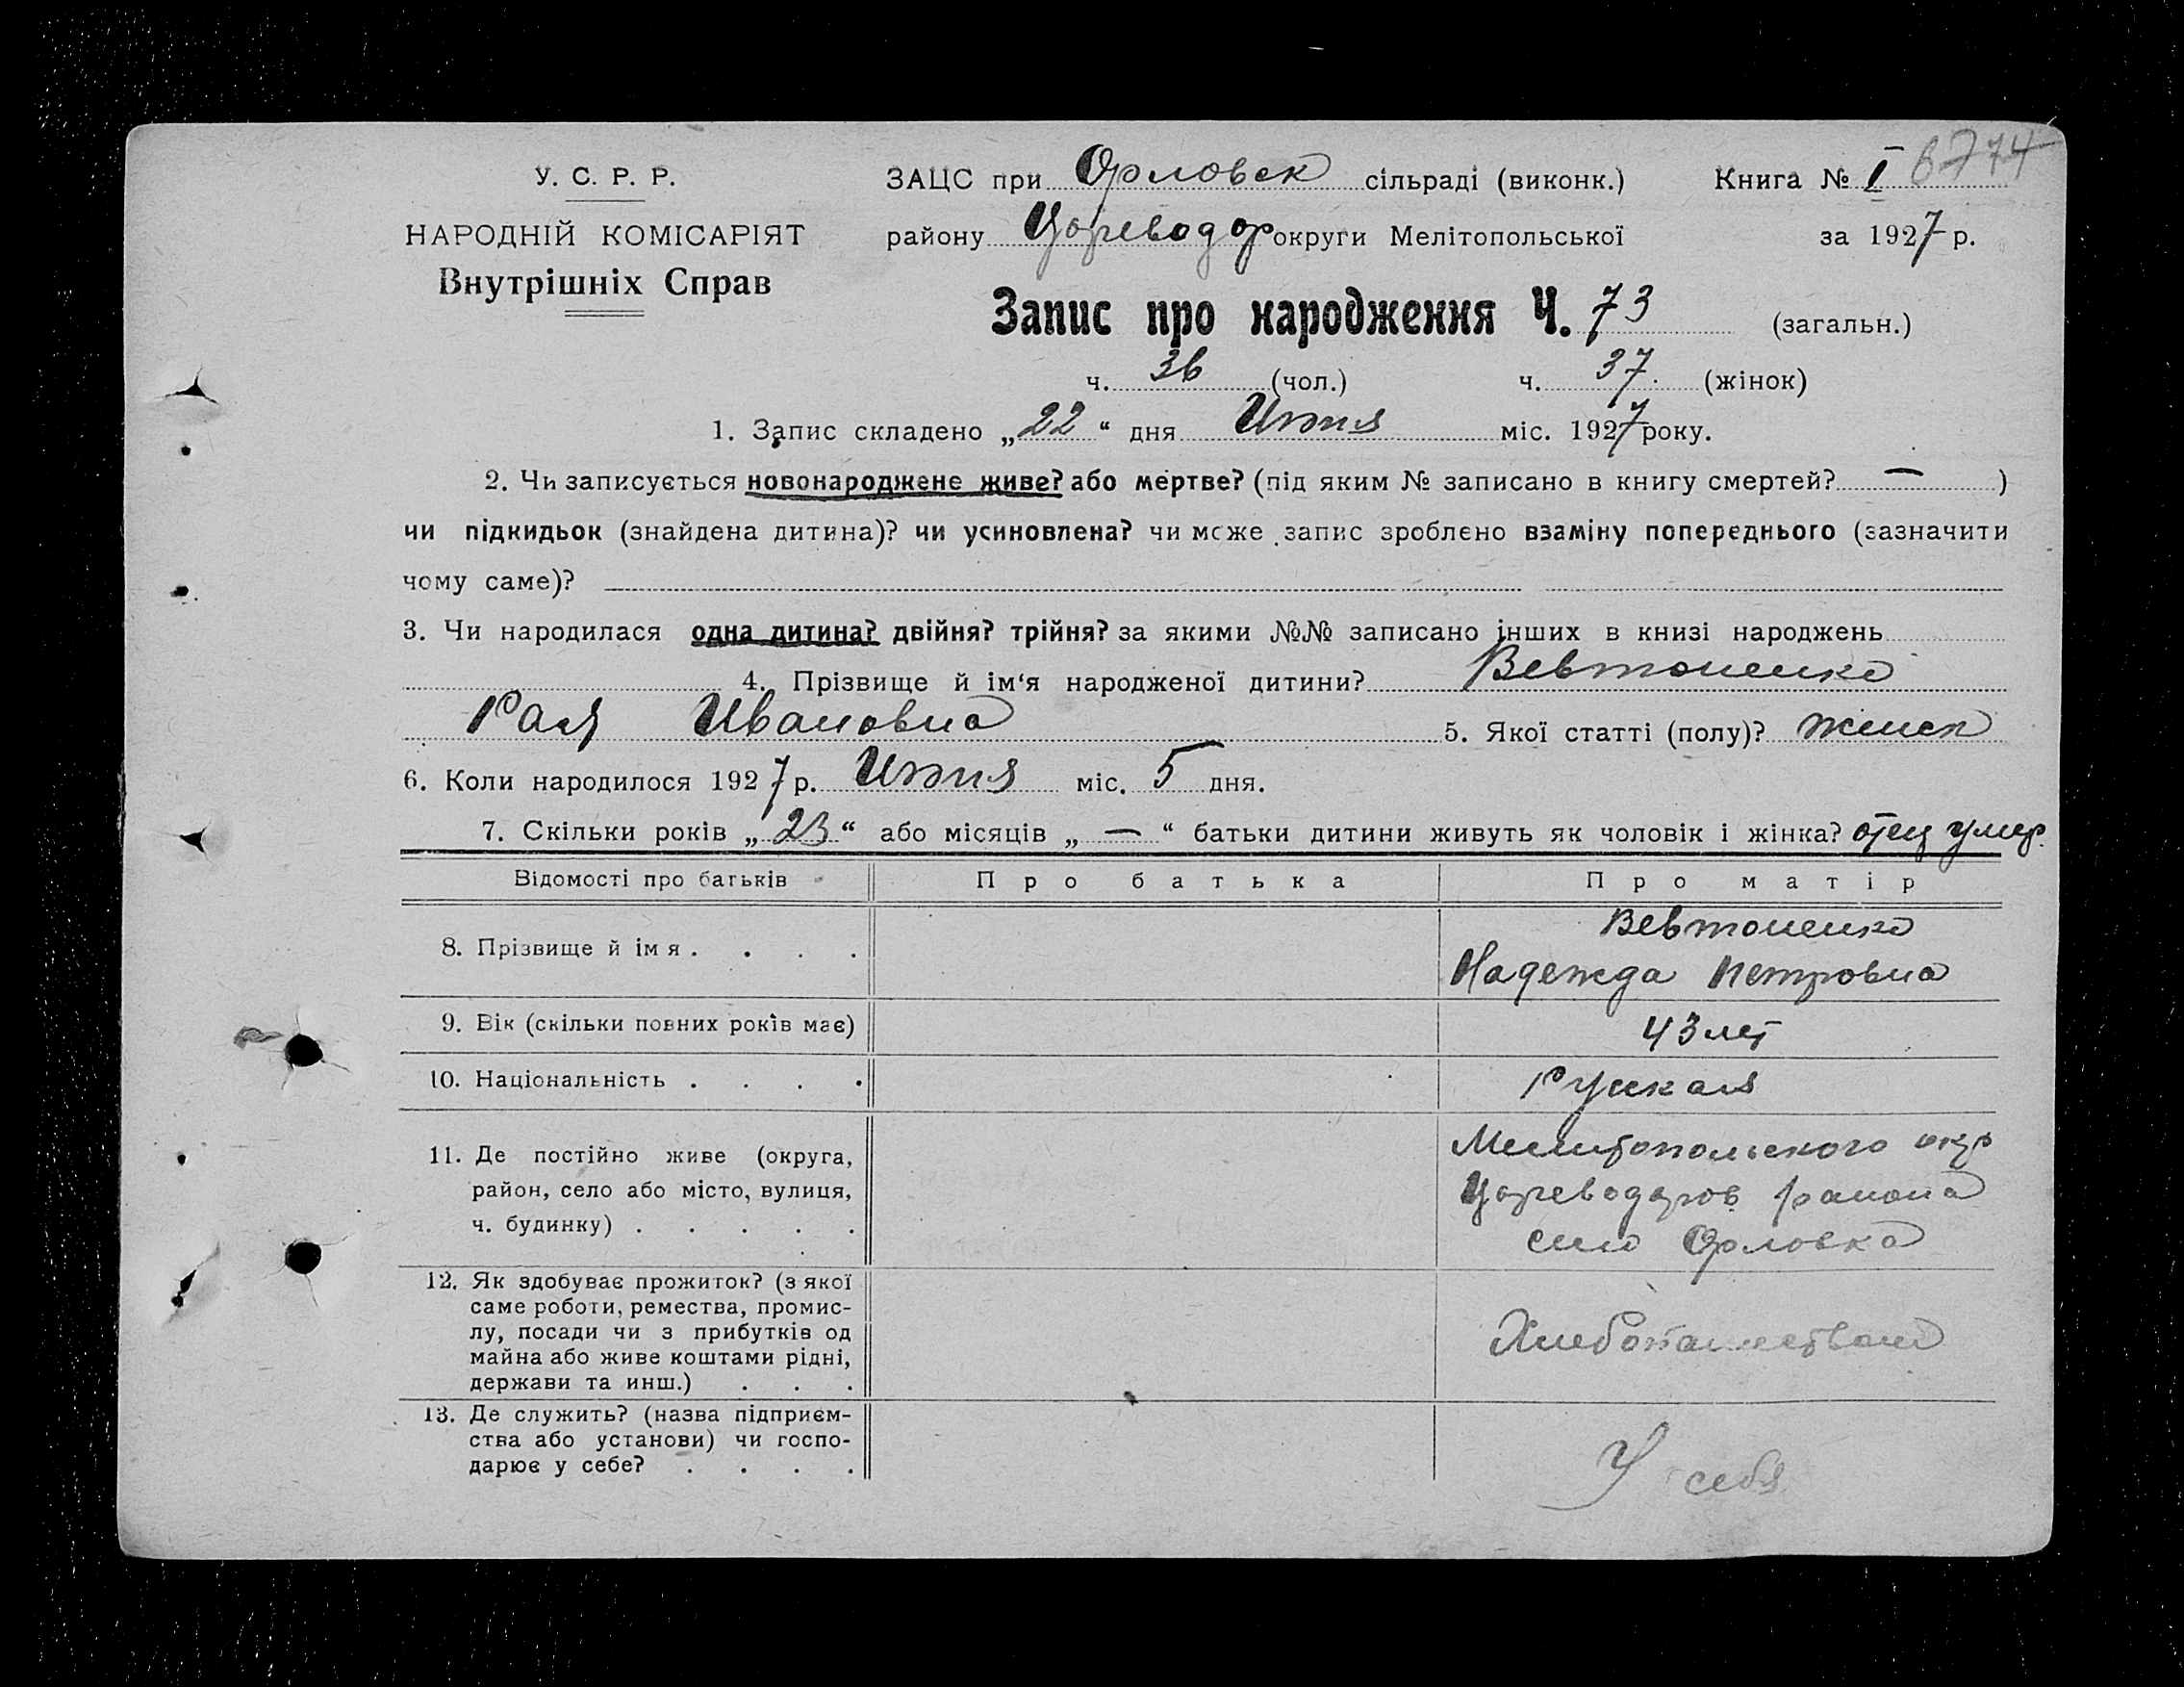 У. С. Р. Р.
НАРОДНІЙ КОМІСАРІЯТ
Внутрішніх Справ
ЗАЦС при Орловск сільраді (виконк.) Книга № I 6774
району Цареводар округи Мелітопольської за 1927 р.
Запис про народження Ч. 73 (загальн.)
ч. 36 (чол.) ч. 37. (жінок)
1. Запис складено „22“ дня Июля міс. 1927 року.
2. Чи записується новонароджене живе? або мертве? (під яким № записано в книгу смертей? — )
чи підкидьок (знайдена дитина)? чи усиновлена? чи може запис зроблено взаміну попереднього (зазначити
чому саме)?
3. Чи народилася одна дитина? двійня? трійня? за якими №№ записано інших в книзі народжень
4. Прізвище й ім‘я народженої дитини? Вевтоненко
Рая Ивановна 5. Якої статті (полу)? женск
6. Коли народилося 1927 р. Июля міс. 5 дня.
7. Скільки років „23“ або місяців „ — “ батьки дитини живуть як чоловік і жінка? отец умер.
Відомості про батьків Про батька Про матір
8. Прізвище й ім я . . . . Вевтоненко
Надежда Петровна
9. Вік (скільки повних років має) 43 лет
10. Національність . . . . Руская
11. Де постійно живе (округа,
район, село або місто, вулиця,
ч. будинку) . . . . .
Мелитопольского окр
Цареводаров района
село Орловка
12. Як здобуває прожиток? (з якої
саме роботи, ремества, промис-
лу, посади чи з прибутків од
майна або живе коштами рідні,
держави та инш.) . . .
Хлебопашеством
13. Де служить? (назва підприєм-
ства або установи) чи госпо-
дарює у себе? . . . .
У себя